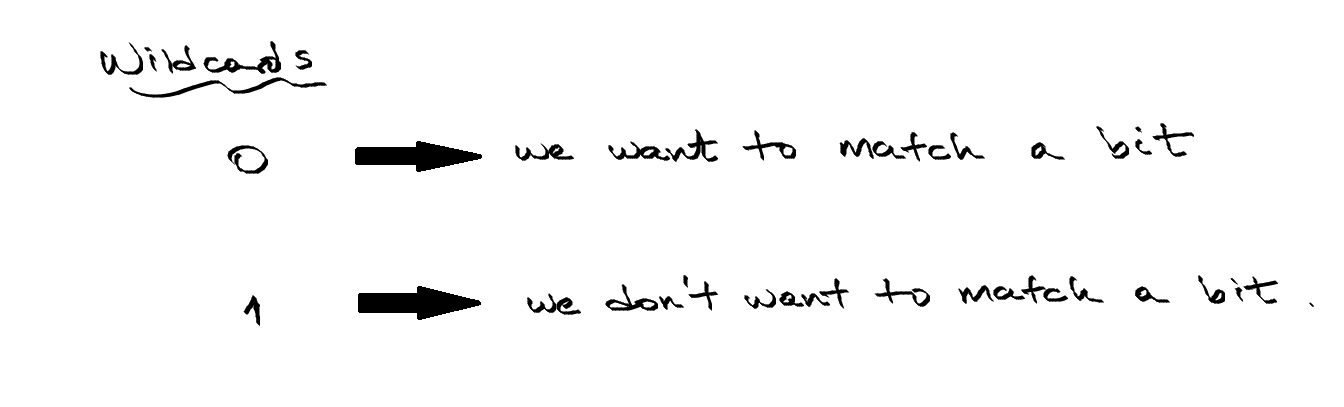 Wildcards
0 → we want to match a bit
1 → we don't want to match a bit.